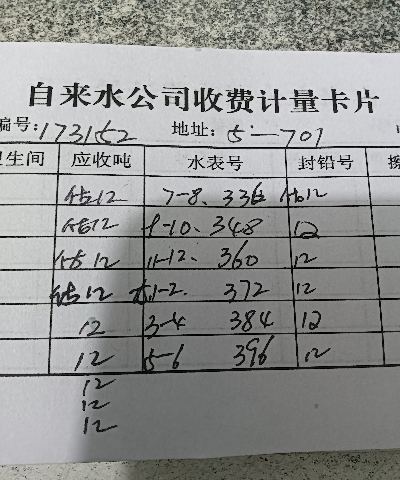 自来水公司收费计量卡片
编号:173152 地址:5-701
卫生间 应收吨 水表号 封铅号
估12 7-8、336 估12
估12 9-10、348 12
估12 11-12、360 12
估12 1-2、372 12
12 3-4 384 12
12 5-6 396 12
12
12
12